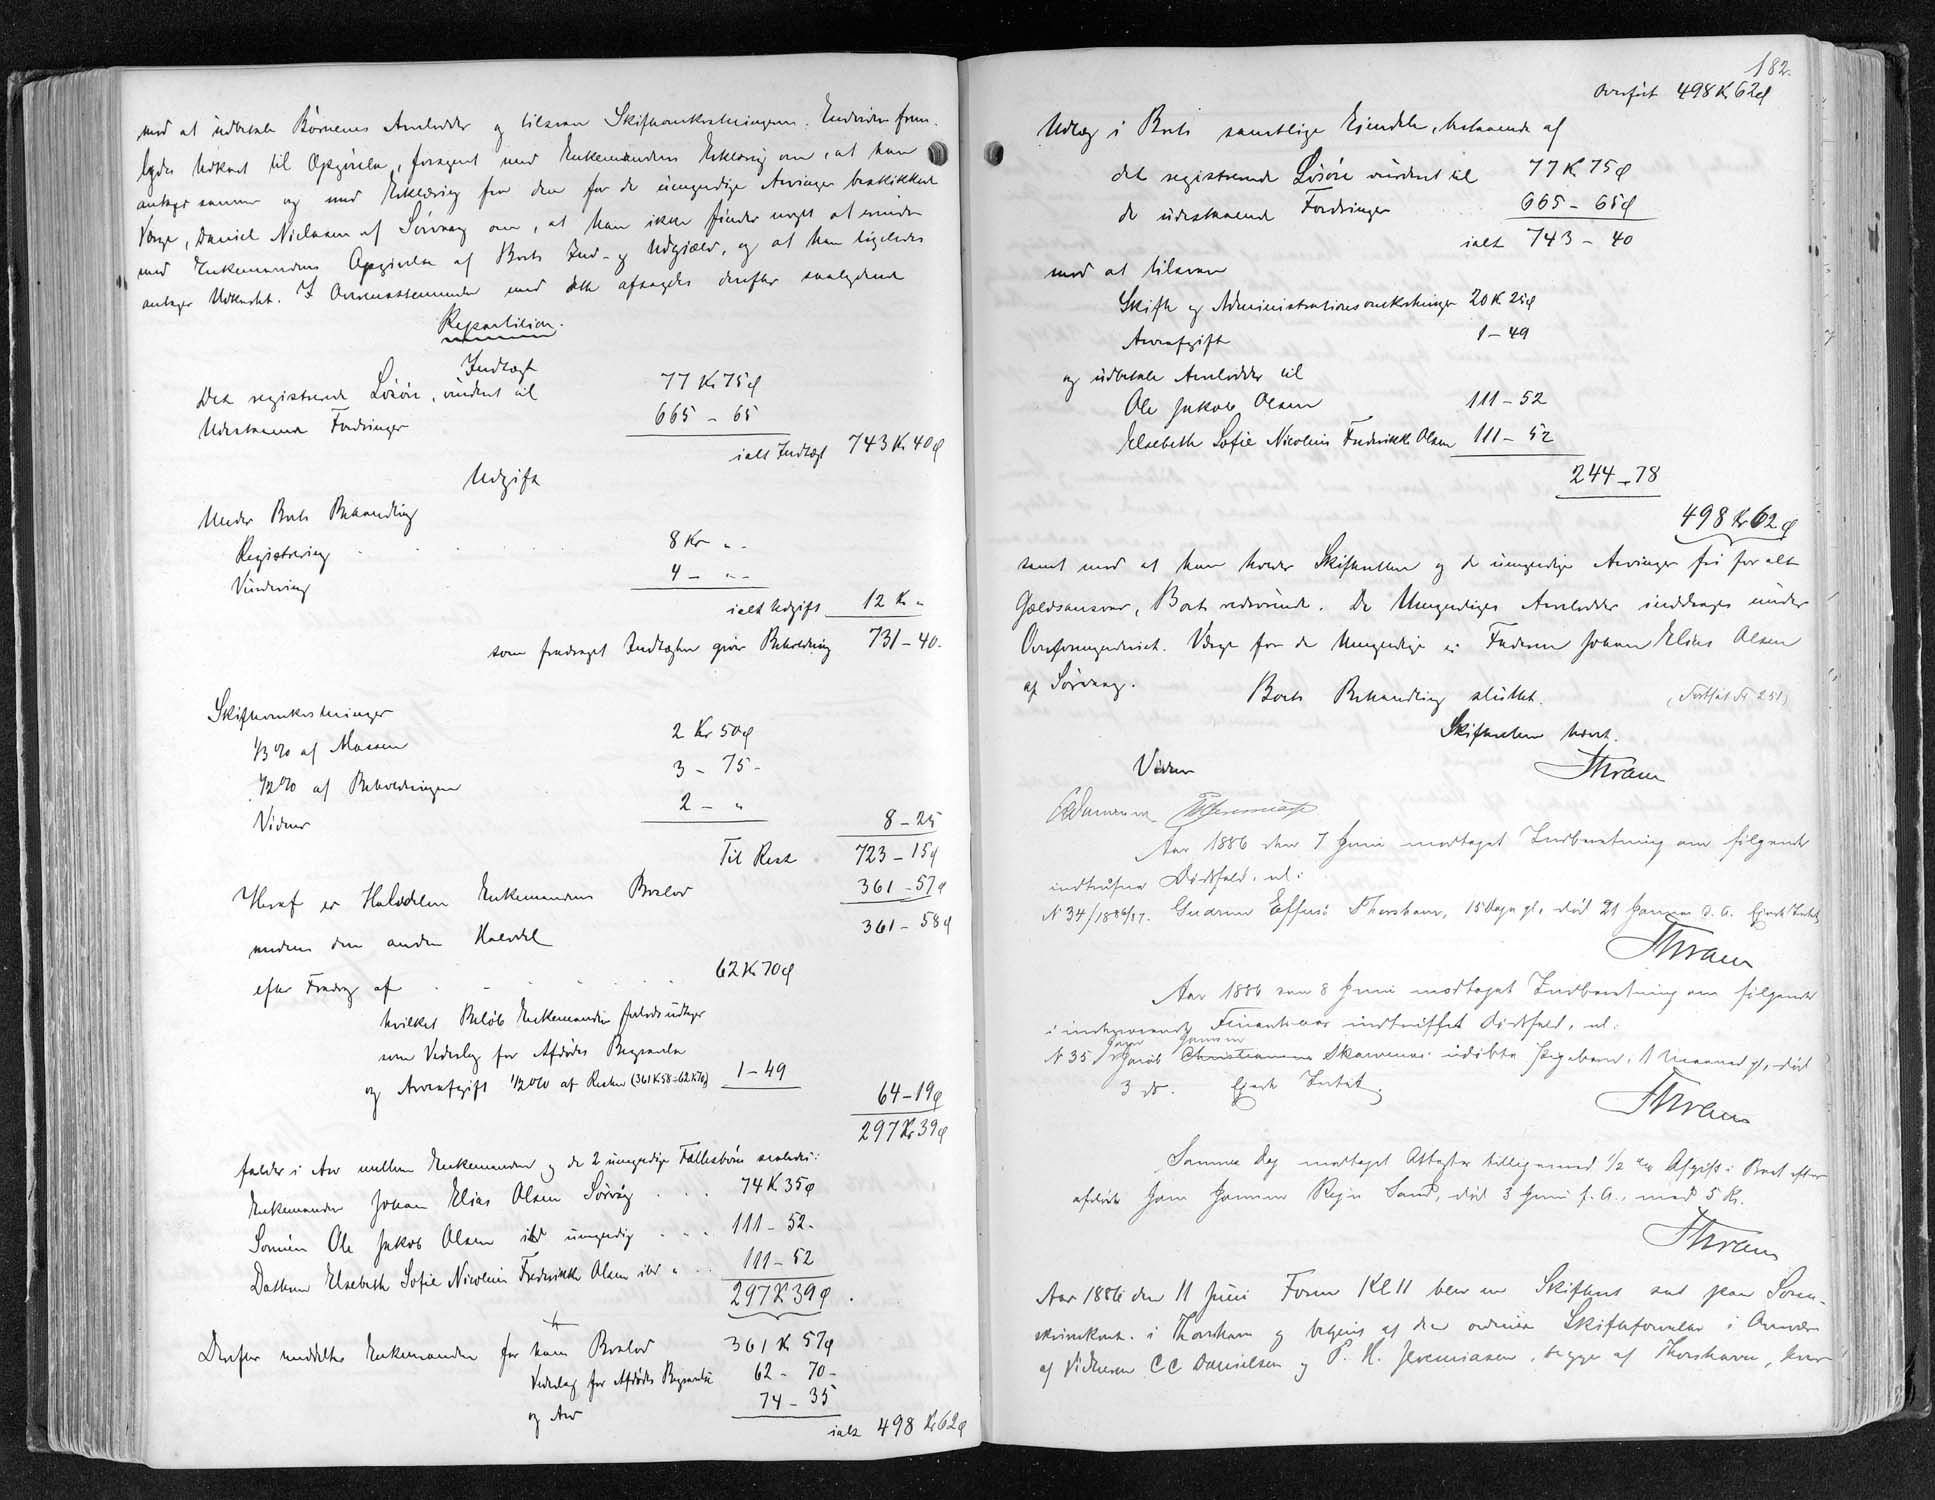 med at udbetale Børnenes Arvelodder og tilsvare Skifteomkostningerne. Endvidere frem-
lagdes Udkast til Opgjørelse, forsynet med Enkemandens Erklæring om, at han
antager samme og med Erklæring fra den for de umyndige Arvinger beskikkede
Værge, Daniel Nielsen af Sørvaag om, at han ikke finder noget at erindre
med Enkemandens Opgivelse af Boets Ind- og Udgjæld, og at han ligeledes
antager Udkastet. I Overensstemmelse med dette afsagdes derefter saalydende
Repartition.
Indtægt
Det registrerede Løsøre, vurderet til 77 Kr 75 Ø
Udestaaende Fordringer 665 - 65
ialt Indtægt 743 Kr 40 Ø
Udgift
Under Boets Behandling
Registrering 8 Kr "-
Vurdering 4 - "-
ialt Udgift 12 Kr "
som fradraget Indtægten giver Beholdning 731 - 40.
Skifteomkostninger
1/3 % af Massen 2 Kr 50 Ø
1/2 % af Beholdningen 3 - 75 -
Vidner 2 - "
8 - 25
Til Rest 723 - 15 Ø
Heraf er Halvdelen Enkemandens Boslod 361 - 57 Ø
medens den anden Halvdel 361 - 58 Ø
efter Fradrag af 62 Kr 70 Ø
hvilket Beløb Enkemanden forlods udtager
som Vederlag for Afdødes Begravelse
og Arveafgift 1/2 % af Resten (361 K 58 ÷ 62 K 70) 1 - 49
64 - 19 Ø
297 Kr 39 Ø
falder i Arv mellem Enkemanden og de 2 umyndige Fællesbørn saaledes:
Enkemanden Johan Elias Olsen Sørvaag 74 K 35 Ø
Sønnen Ole Jakob Olsen ibd umyndig 111 - 52 -
Datteren Elsebeth Sofie Nicoline Frederikke Olsen ibd " 111 - 52
297 K 39 Ø
Derfor uddeltes Enkemanden for hans Boslod 361 K 57 Ø
Vederlag for Afdødes Begravelse 62 - 70 -
og Arv 74 - 35
ialt 498 Kr 62 Ø
182.
Overført 498 K 62 Ø
Udlæg i Boets samtlige Ejendele, bestaaende af
det registrerede Løsøre vurderet til 77 K 75 Ø
de udestaaende Fordringer 665 - 65 Ø
ialt 743 - 40
mod at tilsvare
Skifte og Administrationsomkostninger 20 K 25 Ø
Arveafgift 1 - 49
og udbetale Arvelodder til
Ole Jakob Olsen 111 - 52
Elsebeth Sofie Nicoline Frederikke Olsen 111 - 52
244 - 78
498 Kr 62 Ø
samt mod at han holder Skifteretten og de umyndige Arvinger fri for alt
Gældsansvar, Boet vedrørende. De Umyndiges Arvelodder inddrages under
Overformynderiet. Værge for de Umyndige er Faderen Johan Elias Olsen
af Sørvaag.
Boets Behandling sluttet. (Fortsat Fol 251)
Skifteretten hævet.
Vidner Thram
CCDanielsen PHJeremiasen
Aar 1886 den 7 Juni modtaget Indberetning om følgende
indtrufne Dødsfald, nl:
N 34/1886/87. Gudrun Effersø Thorshavn, 15 Dage gl, død 21 Januar d. A. Ejende Intet
Thram
Aar 1886 den 8 Juni modtaget Indberetning om følgende
i indeværende Finantsaar indtruffet Dødsfald, nl:
N 35/ Jacob Christiansens Skaarenes udøbte Pigebarn, 1 Maaned gl, død
3 ds. Ejende Intet.
Thram
Samme Dag modtaget Attester tilligemed 1/2 % Afgift i Boet efter
afdøde Jens Joensen Rejn Sand, død 3 Juni f. A., med 5 Kr.
Thram
Aar 1886 den 11 Juni Form Kl 11 blev en Skifteret sat paa Soren-
skriverkont. i Thorshavn og betjent af den ordinære Skifteforvalter i Overvær
af Vidnerne C C Danielsen og P. H. Jeremiasen, begge af Thorshavn, hvor